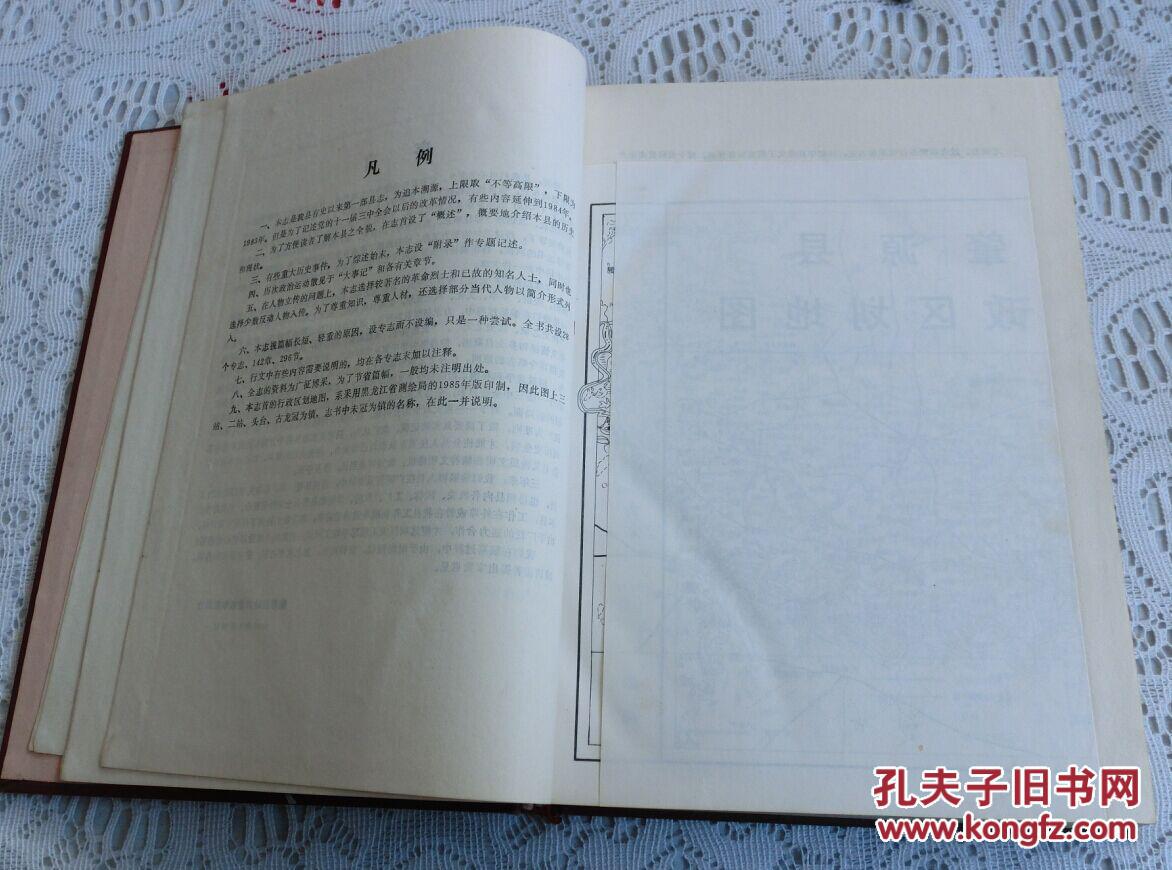 凡 例
一、本志是我县有史以来第一部县志，为追本溯源，上限取“不等高限”，下限为
1983年。但是为了记述党的十一届三中全会以后的改革情况，有些内容延伸到1984年。
二、为了方便读者了解本县之全貌，在志首设了“概述”，概要地介绍本县的历史
和现状。
三、有些重大历史事件，为了综述始末，本志设“附录”作专题记述。
四、历次政治运动散见于“大事记”和各有关章节。
五、在人物立传的问题上，本志选择较著名的革命烈士和已故的知名人士，同时也
选择少数反动人物入传。为了尊重知识，尊重人材，还选择部分当代人物以简介形式列
入。
六、本志视篇幅长短、轻重的原因，设专志而不设编，只是一种尝试。全书共设28
个专志、142章、296节。
七、行文中有些内容需要说明的，均在各专志末加以注释。
八、全志的资料为广征博采，为了节省篇幅，一般均未注明出处。
九、本志首的行政区划地图，系采用黑龙江省测绘局的1985年版印制，因此图上三
站、二站、头台、古龙冠为镇，志书中未冠为镇的名称，在此一并说明。
肇源县
政区划地图
孔夫子旧书网
www.kongfz.com